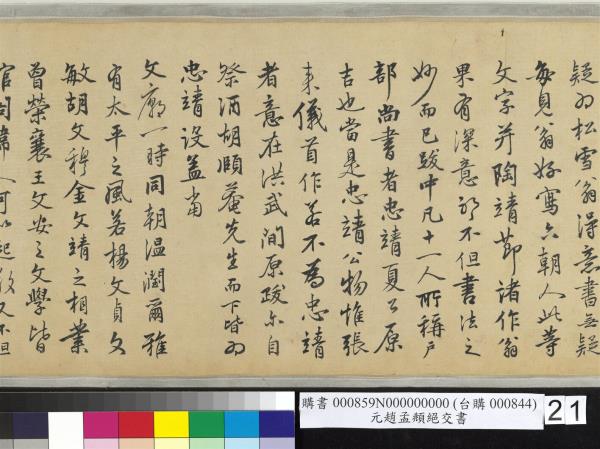 疑為松雪翁得意書無疑
每見翁好寫六朝人此等
文字并陶靖節諸作翁
果有深意耶不但書法之
妙而已跋中凡十一人所稱戶
部尚書者忠靖夏公原
吉也當是忠靖公物惟張
来儀首作若不為忠靖
者意在洪武間原跋亦自
祭酒胡頤菴先生而下皆為
忠靖設盖當
文廟一時同朝温潤爾雅
有太平之風若楊文貞文
敏胡文穆金文靖之相業
曾榮襄王文安之文學皆
購書 000859N000000000 (台購 000844)
元趙孟頫絕交書
21